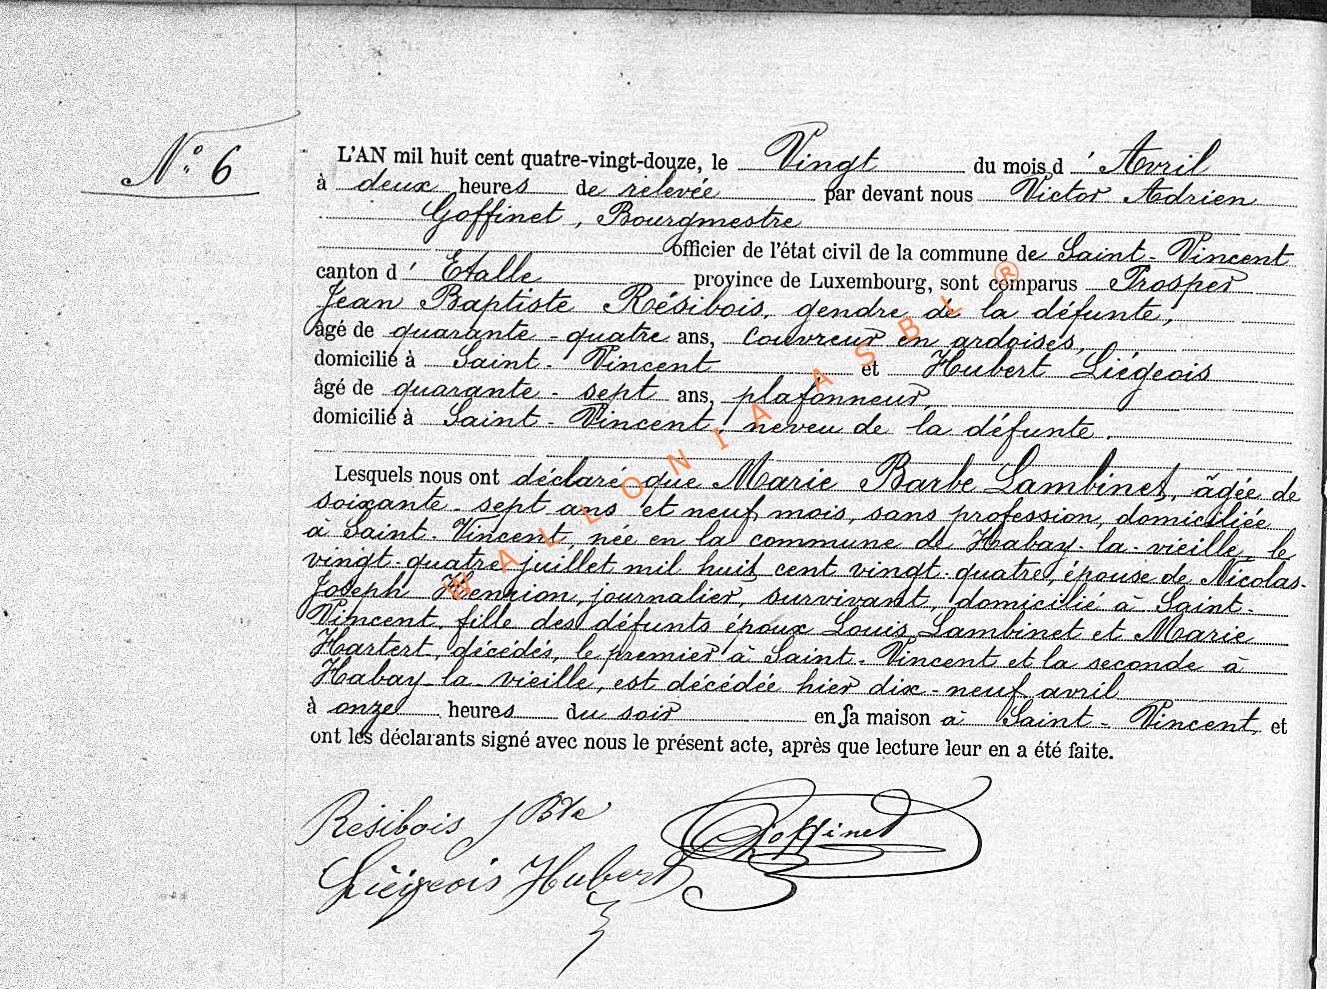 N° 6
L'AN mil huit cent quatre-vingt-douze, le Vingt du mois d' Avril
à deux heures de relevée par devant nous Victor Adrien
Goffinet, Bourgmestre
officier de l'état civil de la commune de Saint-Vincent
canton d' Etalle province de Luxembourg, sont comparus Prosper
Jean Baptiste Résibois, gendre de la défunte,
âgé de quarante-quatre ans, couvreur en ardoises,
domicilié à Saint-Vincent et Hubert Liégeois
âgé de quarante-sept ans, plafonneur,
domicilié à Saint-Vincent, neveu de la défunte.
Lesquels nous ont déclaré que Marie Barbe Lambinet, âgée de
soixante-sept ans et neuf mois, sans profession, domiciliée
à Saint-Vincent, née en la commune de Habay-la-vieille, le
vingt-quatre juillet mil huit cent vingt-quatre, épouse de Nicolas-
Joseph Henrion, journalier, survivant, domicilié à Saint-
Vincent, fille des défunts époux Louis Lambinet et Marie
Hartert, décédés, le premier à Saint-Vincent et la seconde à
Habay-la-vieille, est décédée hier dix-neuf avril
à onze heures du soir en sa maison à Saint-Vincent, et
ont les déclarants signé avec nous le présent acte, après que lecture leur en a été faite.
Résibois J Bte
Goffinet
Liégeois Hubert
WALLONIA ASBL ®